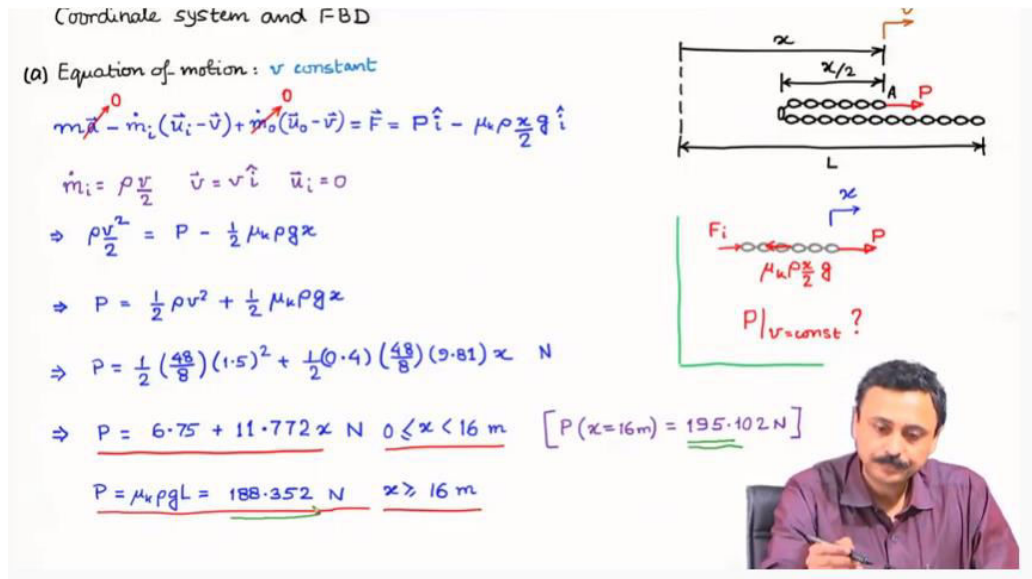 Coordinate system and FBD
(a) Equation of motion : v constant
ma⃗ − ṁᵢ(u⃗ᵢ − v⃗) + ṁₒ(u⃗ₒ − v⃗) = F⃗ = P î − μₖ ρ x/2 g î
0
0
ṁᵢ = ρ v/2   v⃗ = v î   u⃗ᵢ = 0
⇒ ρ v²/2 = P − 1/2 μₖ ρ g x
⇒ P = 1/2 ρ v² + 1/2 μₖ ρ g x
⇒ P = 1/2 (48/8) (1·5)² + 1/2 (0·4) (48/8) (9·81) x N
⇒ P = 6·75 + 11·772 x N 0 ⩽ x < 16 m [P(x=16m) = 195·102 N]
P = μₖ ρ g L = 188·352 N x ⩾ 16 m
v
x
x/2
A P
L
x
Fi P
μₖ ρ x/2 g
P|v=const ?